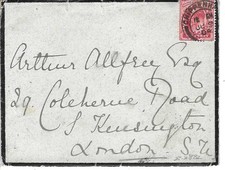 Arthur Allfrey Esq
29 Coleherne Road
S Kensington
London S.W.